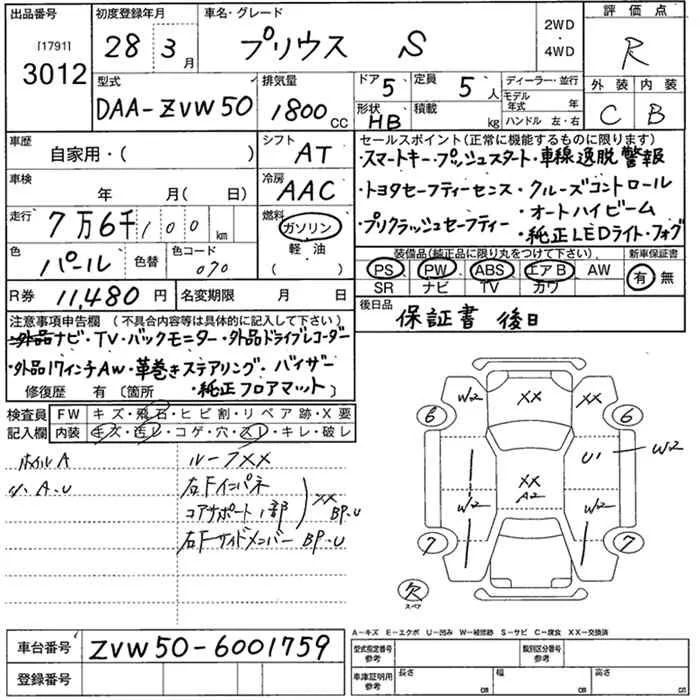 出品番号
[1791]
3012
初度登録年月
28年 3月
車名・グレード
プリウス S
2WD
・
4WD
評価点
R
外装 内装
C B
型式
DAA-ZVW50
排気量
1800cc
ドア 5
形状 HB
定員 5人
積載 kg
ディーラー・並行
モデル年式 年
ハンドル 左・右
車歴
自家用・( )
シフト
AT
車検
年 月( 日)
冷房
AAC
走行
7万6千100km
燃料
ガソリン
軽油
( )
色
パール
色替
色コード
070
R券 11,480円
名変期限 月 日
セールスポイント(正常に機能するものに限ります)
・スマートキー・プッシュスタート・車線逸脱警報
・トヨタセーフティーセンス・クルーズコントロール
・オートハイビーム
・プリクラッシュセーフティー
・純正LEDライト・フォグ
装備品(純正品に限り丸をつけて下さい)
PS PW ABS エアB AW
SR ナビ TV カワ
新車保証書
有 無
後日品
保証書 後日
注意事項申告欄 (不具合内容等は具体的に記入して下さい)
外品ナビ・TV・バックモニター・外品ドライブレコーダー
・外品17インチAW・革巻きステアリング・バイザー
修復歴 有 〔箇所 〕
・純正フロアマット
検査員記入欄
FW キズ・飛石・ヒビ割・リペア跡・X要
内装 キズ・汚レ・コゲ・穴・スレ・キレ・破レ
ホイルA
ルーフXX
小A.U
右Fインパネ
コアサポート1部
XX
BP.U
右Fサイドメンバー BP.U
W2 XX XX
6 6
U1 W2
XX
A2
W2 W2
7 7
欠
スペア
A-キズ E-エクボ U-凹み W-補修跡 S-サビ C-腐食 XX-交換済
車台番号 ZVW50-6001759
登録番号
型式指定番号
参考
類別区分番号
参考
車庫証明用
参考
長さ cm
幅 cm
高さ cm